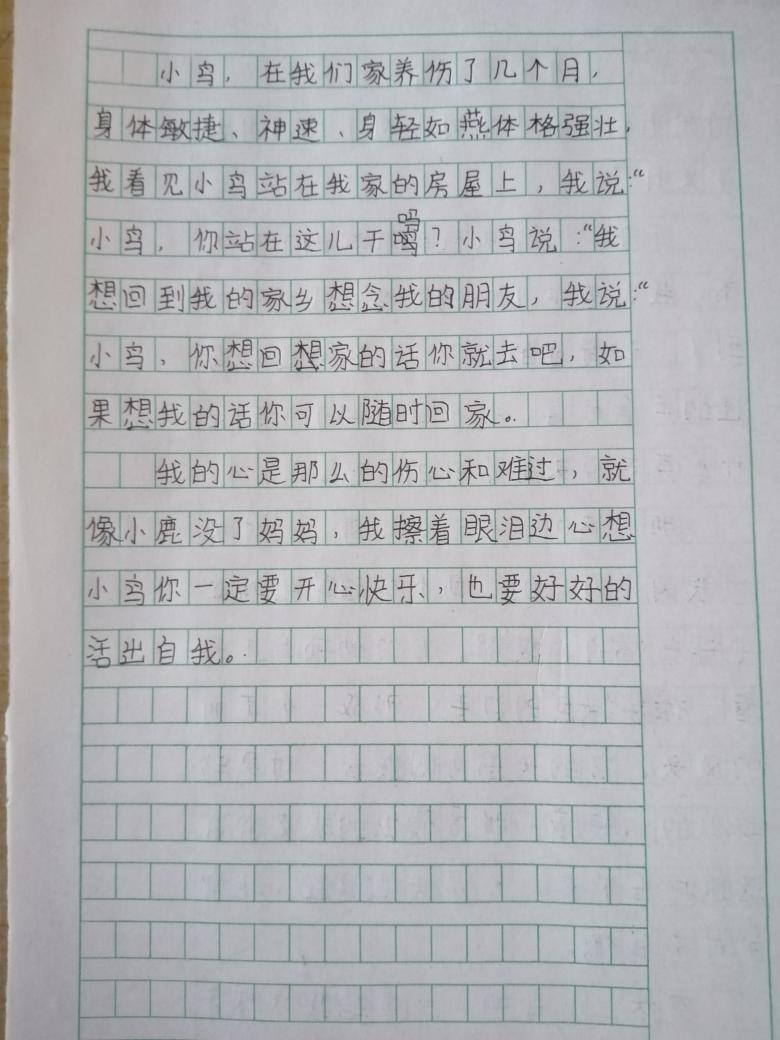 小鸟，在我们家养伤了几个月，
身体敏捷、神速、身轻如燕体格强壮，
我看见小鸟站在我家的房屋上，我说：“
小鸟，你站在这儿干吗？小鸟说：“我
想回到我的家乡想念我的朋友，我说：“
小鸟，你想回想家的话你就去吧，如
果想我的话你可以随时回家。
我的心是那么的伤心和难过，就
像小鹿没了妈妈，我擦着眼泪边心想
小鸟你一定要开心快乐，也要好好的
活出自我。